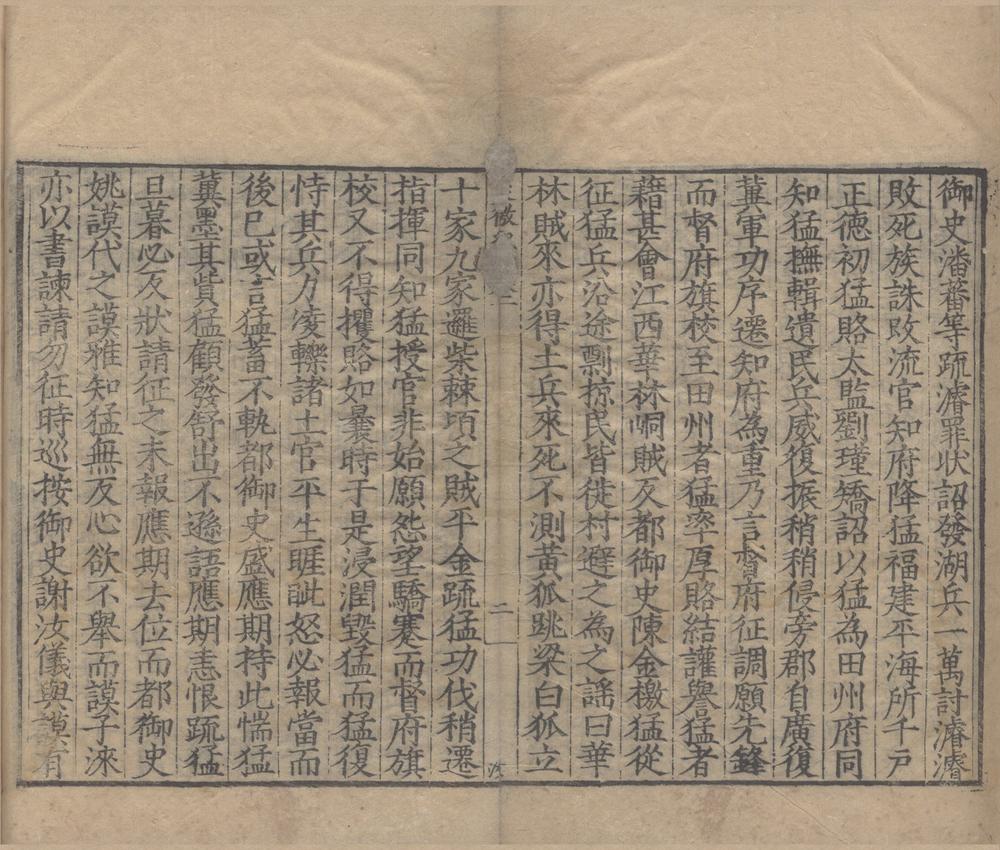 御史潘蕃等疏濬罪狀詔發湖兵一萬討濬濬
敗死族誅改流官知府降猛福建平海所千戸
正德初猛賂太監劉瑾矯詔以猛為田州府同
知猛撫輯遺民兵威復振稍稍侵旁郡自廣復
冀軍功序遷知府為重乃言督府征調願先鋒
而督府旗校至田州者猛率厚賂結讙譽猛者
藉甚會江西華林峒賊反都御史陳金檄猛從
征猛兵沿途剽掠民皆徙村避之為之謡曰華
林賊來亦得土兵來死不測黃狐跳梁白狐立
十家九家邏柴棘頃之賊平金疏猛功伐稍遷
指揮同知猛授官非始願怨望驕蹇而督府旗
校又不得攫賂如曩時于是浸潤毀猛而猛復
恃其兵力凌轢諸土官平生睚眦怒必報當而
後已或言猛蓄不軌都御史盛應期持此惴猛
冀墨其貲猛顧發舒出不遜語應期恚恨疏猛
旦暮必反狀請征之未報應期去位而都御史
姚謨代之謨雅知猛無反心欲不舉而謨子淶
亦以書諫請勿征時巡按御史謝汝儀與謨有
二